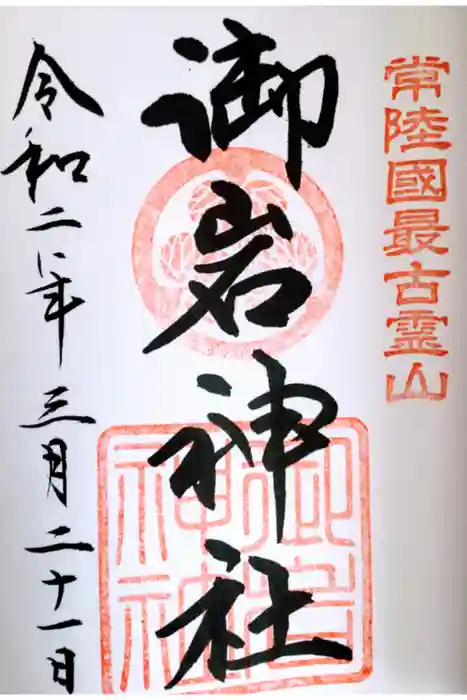 常陸國最古霊山
御岩神社
令和二年三月二十一日
御岩
神社